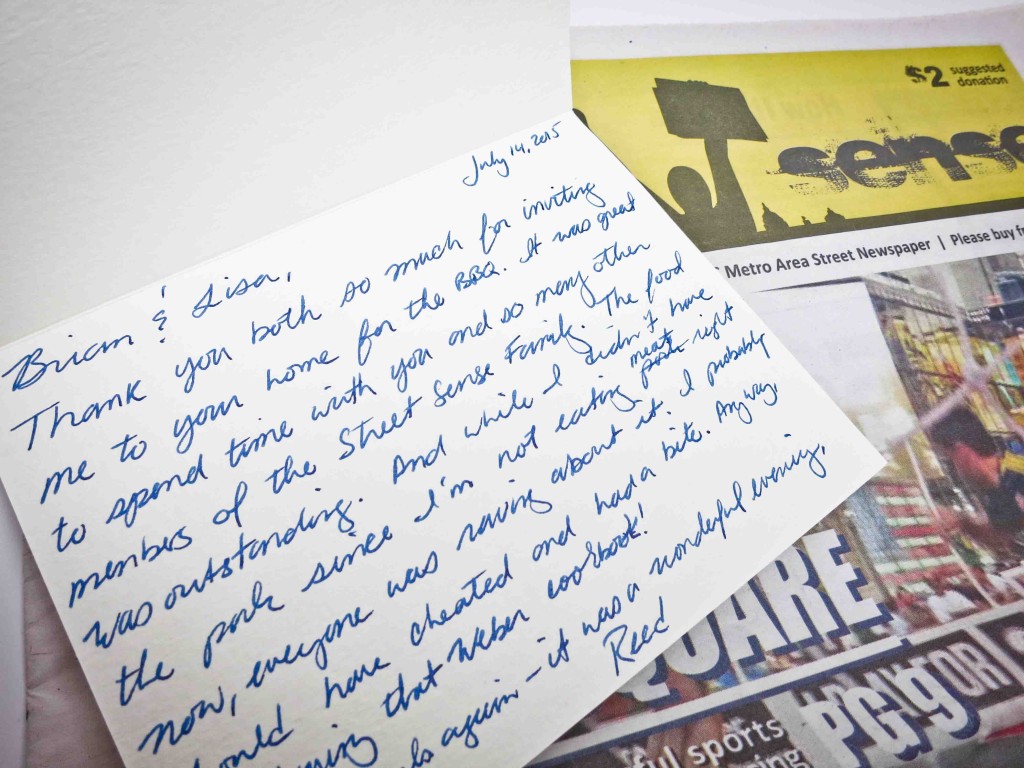 July 14, 2015
Brian & Lisa,
Thank you both so much for inviting
me to your home for the BBQ. It was great
to spend time with you and so many other
members of the Street Sense Family. The food
was outstanding. And while I didn't have
the pork since I'm not eating meat right
now, everyone was raving about it. I probably
should have cheated and had a bite. Anyway,
that Weber cookbook!
again - it was a wonderful evening.
Reed
$2 suggested
donation
sense
Metro Area Street Newspaper | Please buy
QUARE
PG 9
ful sports